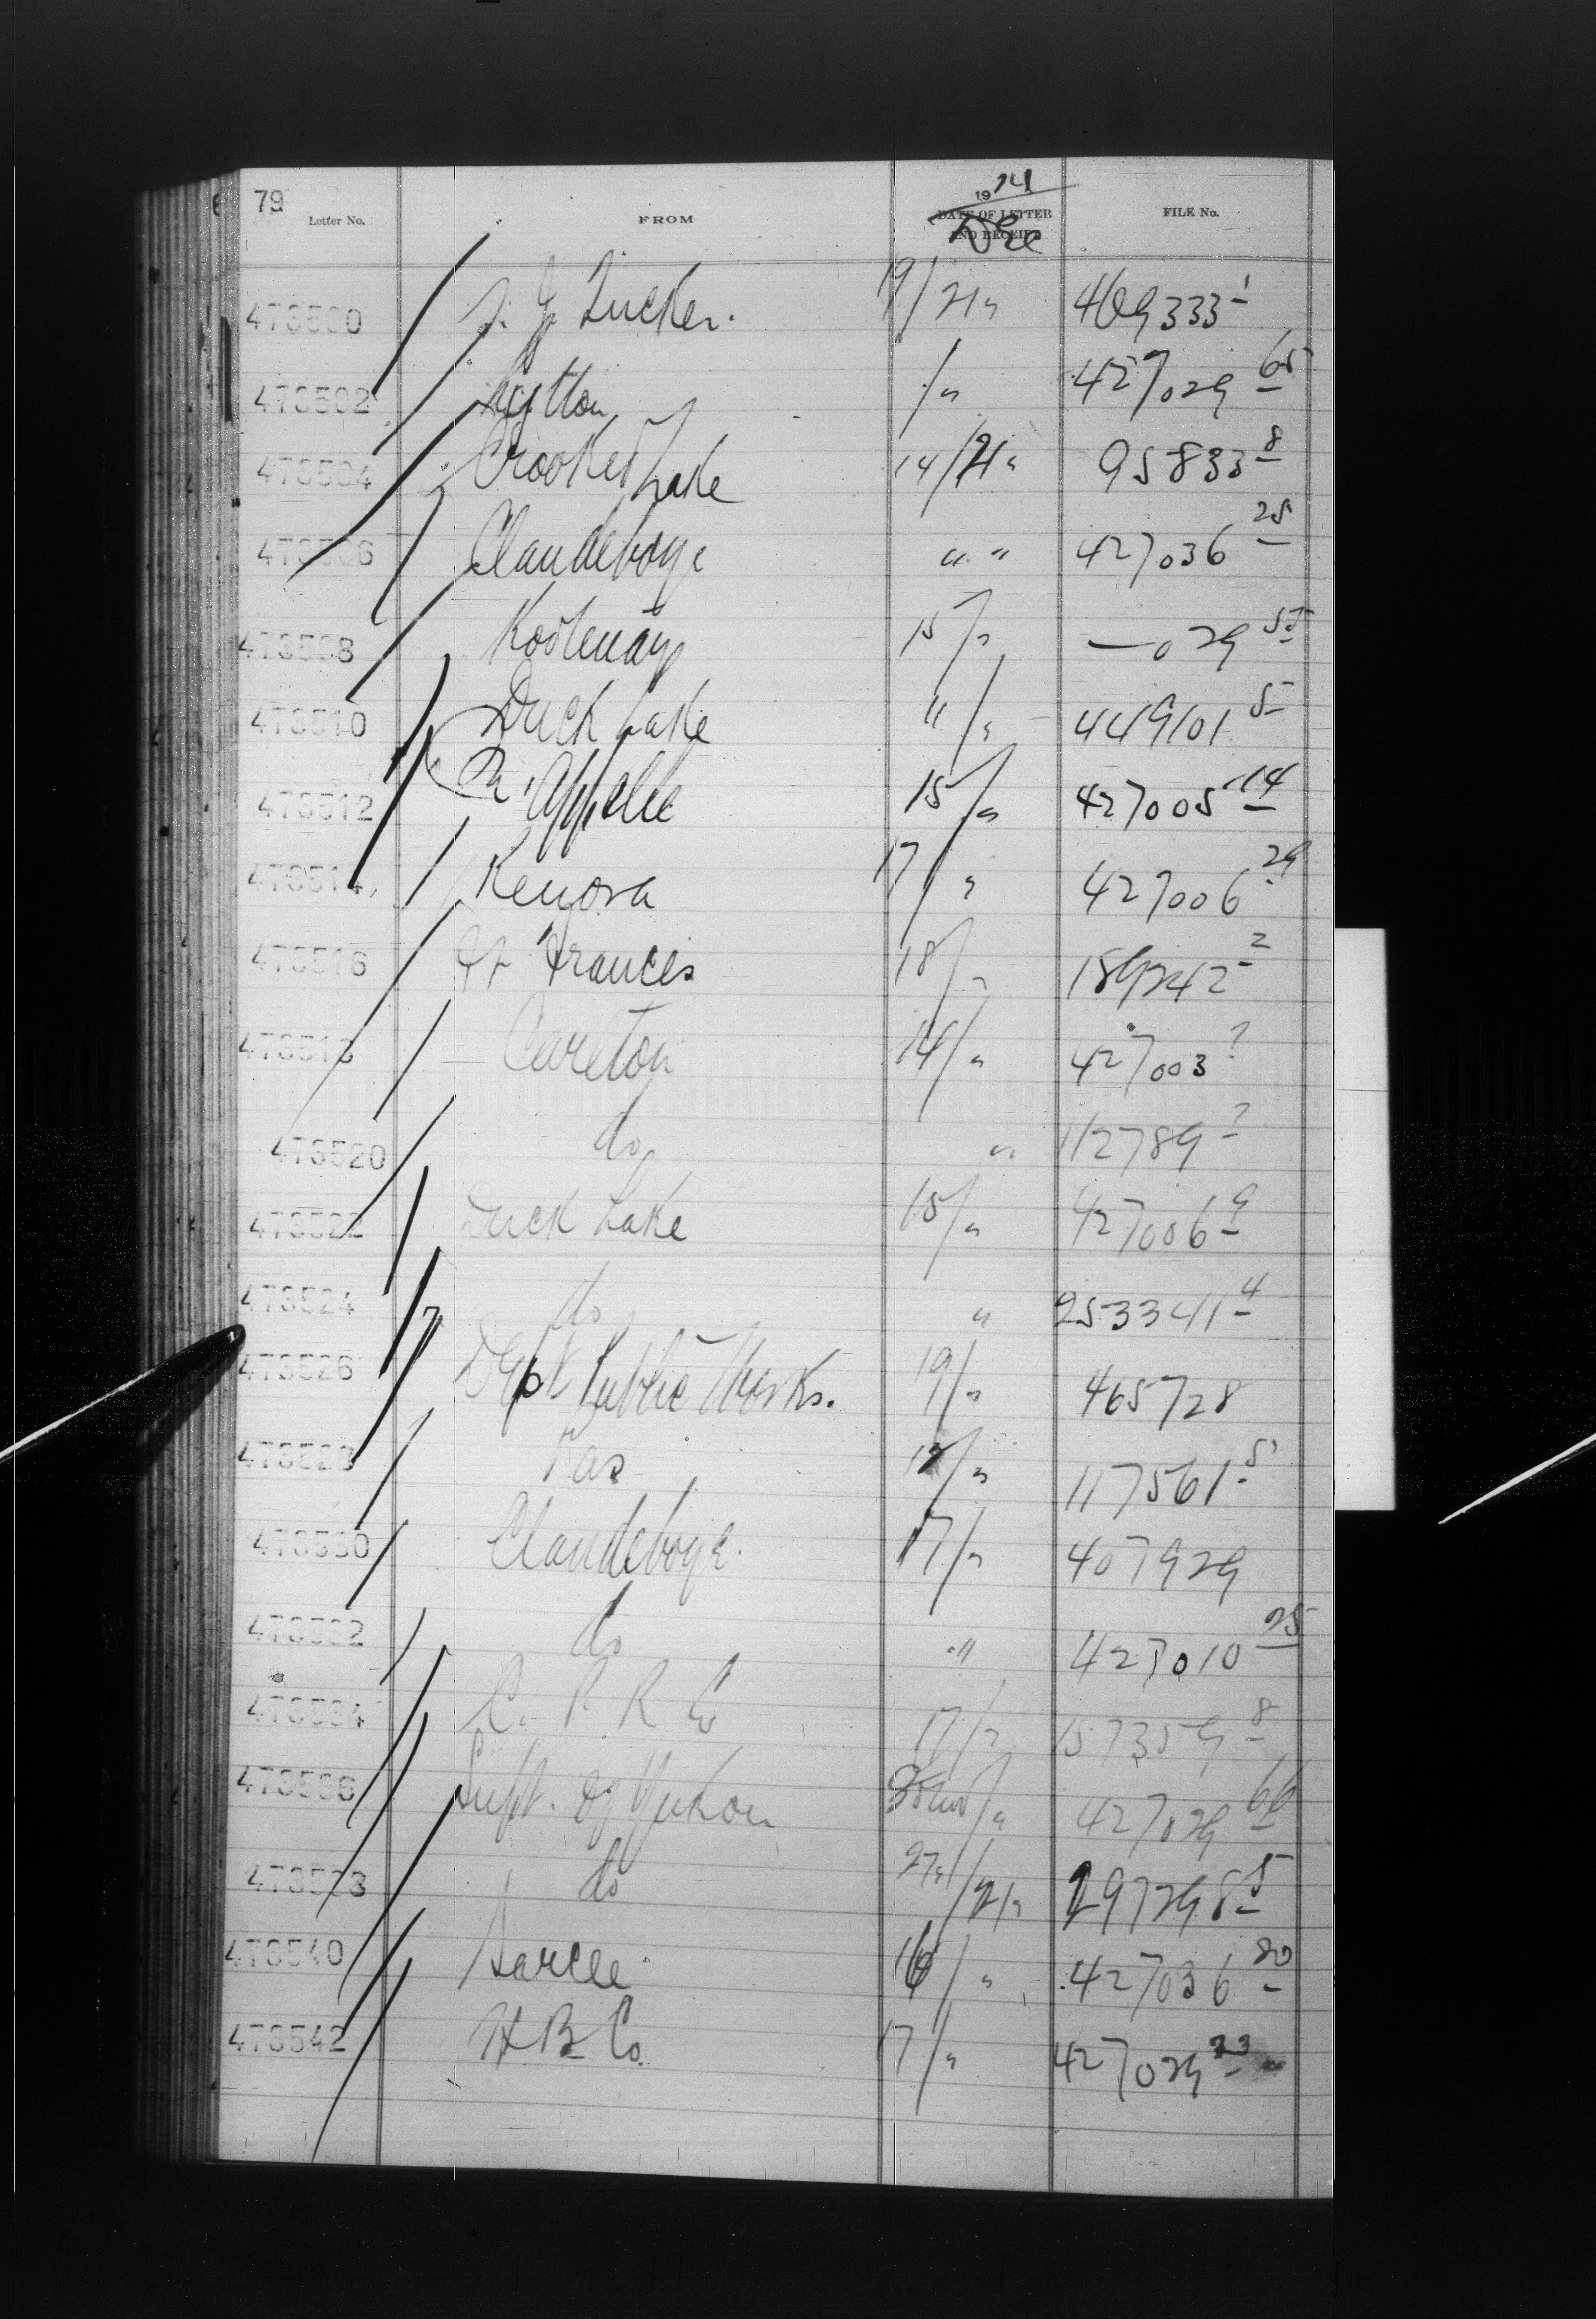 79
Letter No. FROM 19 14 DATE OF LETTER AND RECEIPT Dec FILE No.
473500 Tucker. 19/21 " 409333-1
473502 Lytton / " 427029-65
473504 Crooked Lake 14/21 " 95833-8
473506 Clandeboye " " 427036-25
473508 Kootenay 15/ " — 029-55
473510 Duck Lake " / " 449101-5
473512 Qu'Appelle 15/ " 427005-14
473514 Kenora 17/ " 427006-29
473516 Ft Frances 18/ " 189242-2
473518 Carlton 14/ " 427003
473520 do " 112789
473522 Duck Lake 15/ " 427006-9
473524 do " 253341-4
473526 Dept Public Works. 19/ " 465728
473528 Pas / " 117561-5
473530 Clandeboye. 17/ " 407929
473532 do " 427010-25
473534 C. P. R. Co 17/ " 157359-8
473536 Supt. of Yukon / " 427029-66
473538 do 27 " /21 " 297298-5
473540 Sarcee 16/ " 427036-80
473542 H B Co. 17/ " 427029-23